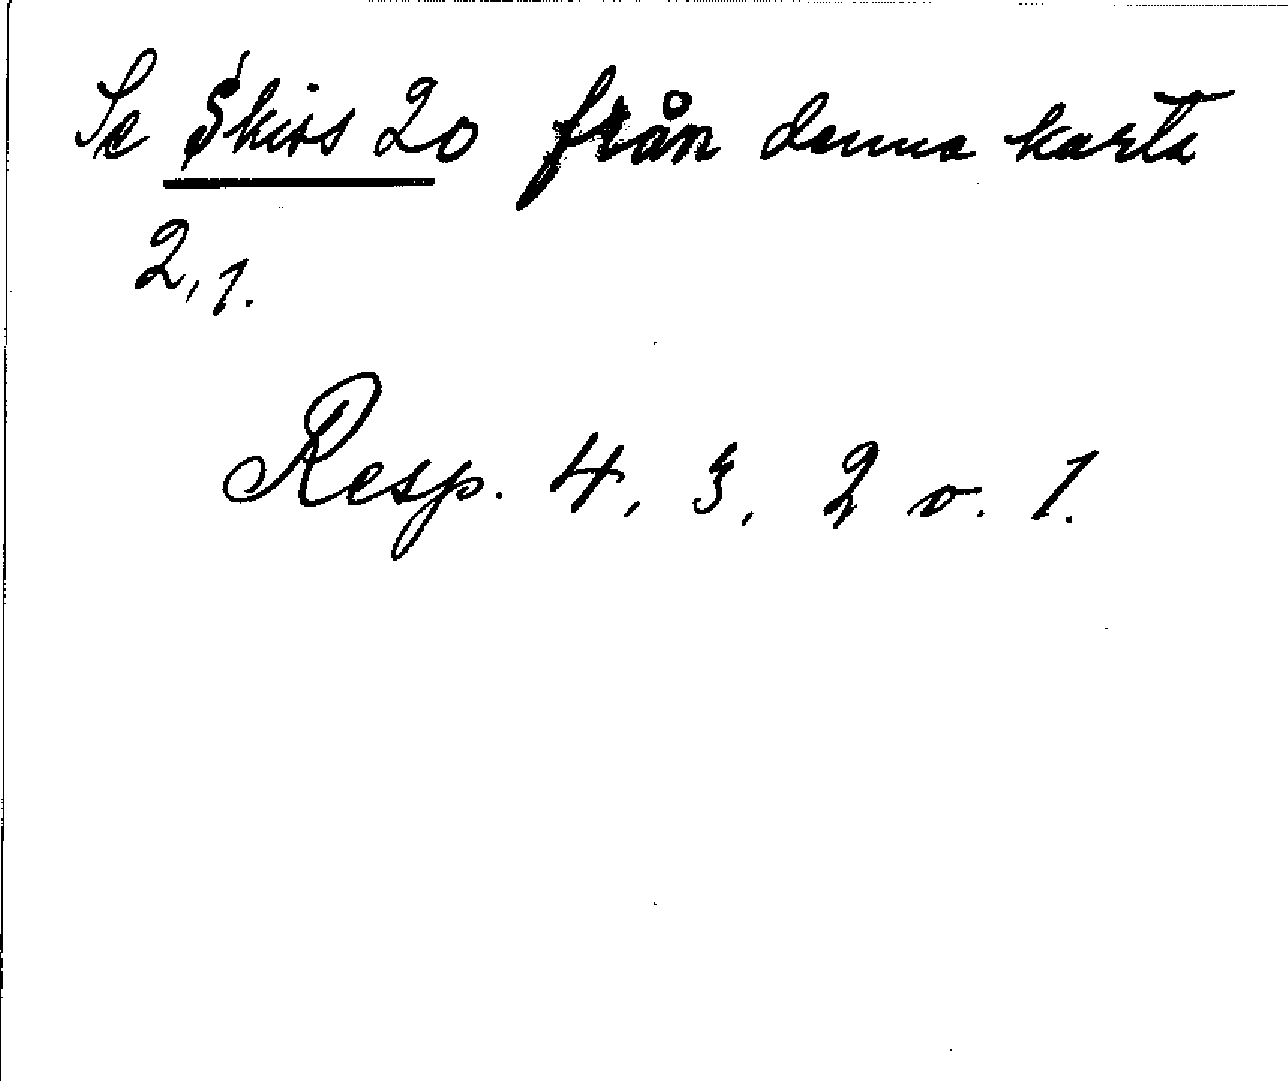 Se Skirs 20 från denna karta
2,1.
Resp. 4, 3, 2 o. 1.